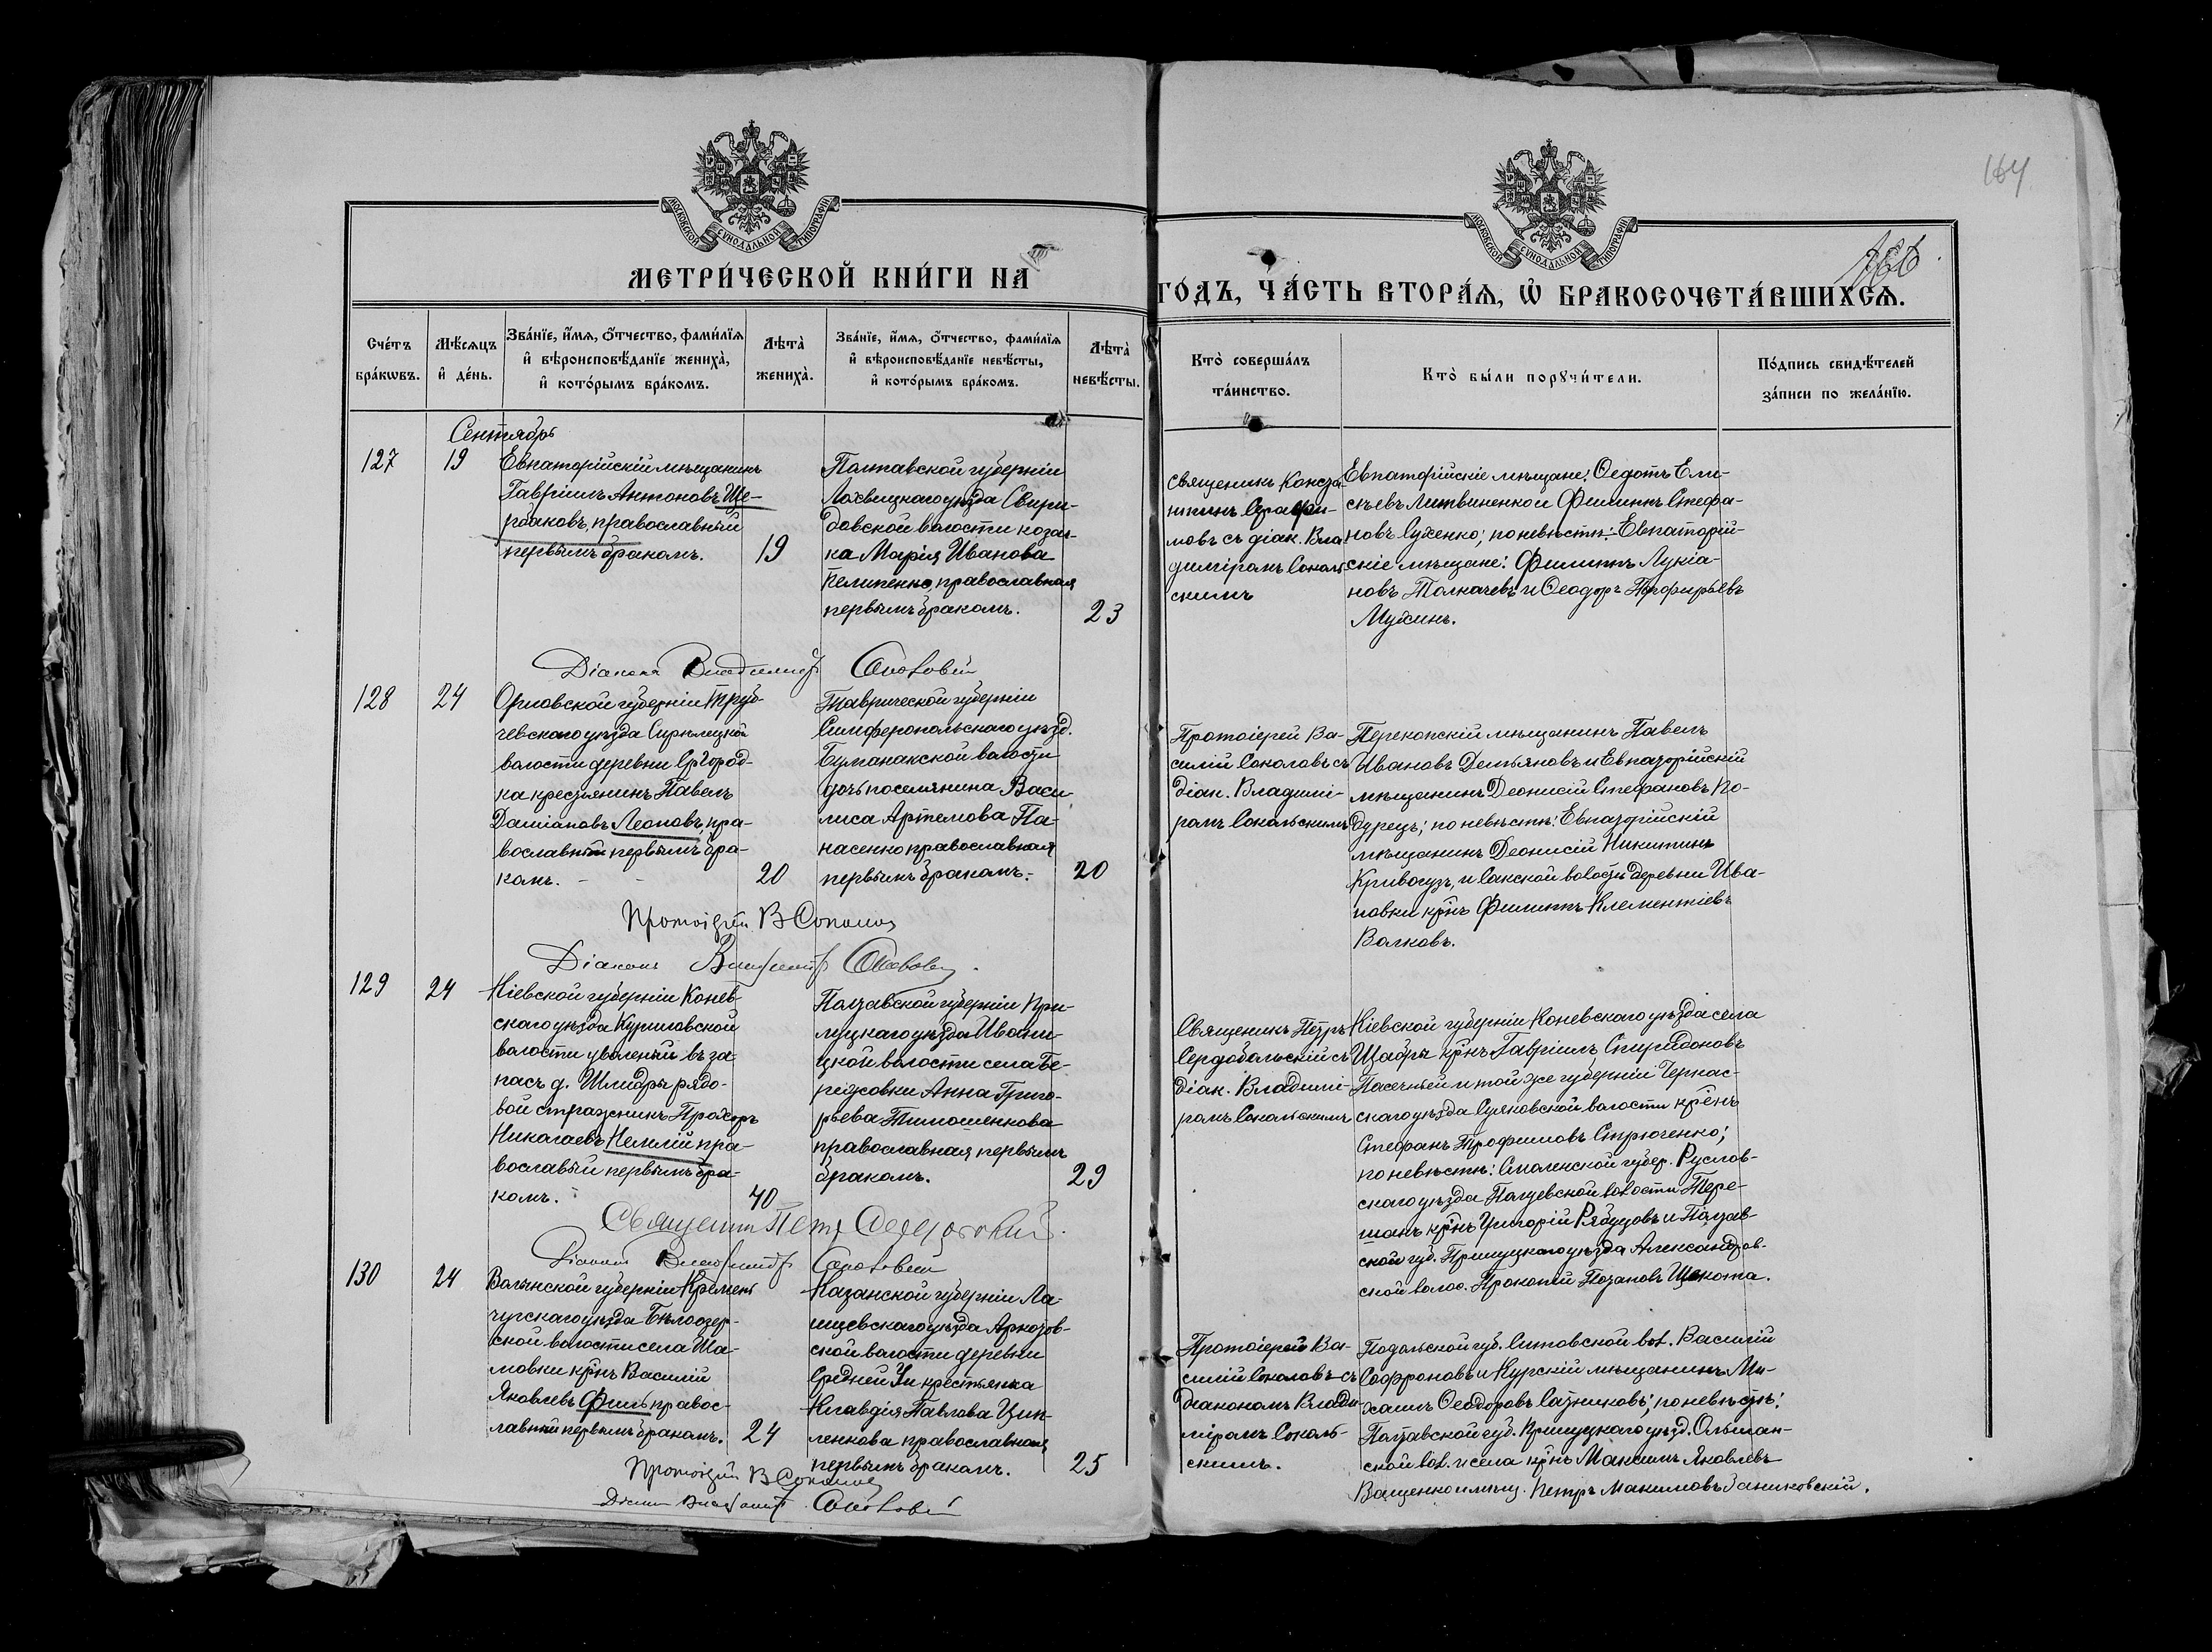 164
МОСКОВСКОЙ СУНОДАЛЬНОЙ ТИПОГРАФІИ
МОСКОВСКОЙ СУНОДАЛЬНОЙ ТИПОГРАФІИ
МЕТРИ́ЧЕСКОЙ КНИ́ГИ НА
ГО́ДЪ, ЧА́СТЬ ВТОРА́Я, Ѡ҆ БРАКОСОЧЕТА́ВШИХСѦ.
Сче́тъ
бра́кѡвъ.
Мѣ́сяцъ
и҆ де́нь.
Зва́нїе, и҆́мѧ, ѻ҆́тчество, фами́лїѧ
и҆ вѣроисповѣ́данїе жениха̀,
и҆ кото́рымъ бра́комъ.
Лѣта̀
жениха̀.
Зва́нїе, и҆́мѧ, ѻ҆́тчество, фами́лїѧ
и҆ вѣроисповѣ́данїе невѣ́сты,
и҆ кото́рымъ бра́комъ.
Лѣта̀
невѣ́сты.
Кто̀ соверша́лъ
та́инство.
Кто̀ бы́ли порꙋчи́тели.
По́дпись свидѣ́телей
за́писи по жела́нїю.
Сентябрь
127
19
Евпаторійскій мѣщанинъ
Гавріилъ Антоновъ Ще-
рбаковъ, православный
первымъ бракомъ.
19
Полтавской губерніи
Лохвицкаго уѣзда Свири-
довской волости козач-
ка Марія Иванова
Пелипенко, православная
первымъ бракомъ.
23
Священикъ Конста-
нтинъ Серафи-
мовъ съ діак. Вла-
диміромъ Соколь-
скимъ
Евпаторійскіе мѣщане: Ѳедотъ Ели-
сѣевъ Литвиненко и Филиппъ Стефа-
новъ Сухенко; по невѣстѣ: Евпаторій-
скіе мѣщане: Филиппъ Лукіа-
новъ Толкачевъ и Ѳеодоръ Порфирьевъ
Мухинъ.
Діаконъ Владиміръ
128
24
Орловской губерніи Труб-
чевскаго уѣзда
волости деревни
ка крестьянинъ Павелъ
Даміановъ Леоновъ, пра-
вославный первымъ бра-
комъ.
20
Таврической губерніи
Симферопольскаго уѣзд.
Булганакской волости
дочь поселянина Васи
лиса Артемова Па-
насенко православная
первымъ бракомъ.
20
Протоіерей Ва-
силій Соколовъ съ
діак. Владимі-
ромъ Сокольскимъ
Перекопскій мѣщанинъ Павелъ
Ивановъ Демьяновъ и Евпаторійскій
мѣщанинъ Деонисій Стефановъ По-
дурецъ; по невѣстѣ: Евпаторійскій
мѣщанинъ Деонисій Никитинъ
и Сакской волости деревни Ива-
новки крнъ Филиппъ Клементіевъ
Волковъ.
Протоіерей В Соколовъ
Діаконъ Владиміръ
129
24
Кіевской губерніи Конев-
скаго уѣзда Куриловской
волости уволеный въ за-
пасъ д. рядо-
вой стражникъ Прохоръ
Николаевъ пра-
вославый первымъ бра-
комъ.
40
Полтавской губерніи При-
луцкаго уѣзда Ивани-
цкой волости села Бе-
резовки Анна Григо-
рьева Тимошенкова
православная первымъ
бракомъ.
29
Священикъ Петръ
Сердобольскій съ
діак. Владимі-
ромъ Сокольскимъ
Кіевской губерніи Коневскаго уѣзда села
крнъ Гавріилъ Спиридоновъ
Пасечный и той же губерніи Черкас-
скаго уѣзда волости крнъ
Стефанъ Трофимовъ
по невѣстѣ: Смоленской губер. Руслов-
скаго уѣзда волости Тере-
крнъ Григорій Рябцовъ и Полтав-
ской губ. Прилуцкаго уѣзда Александров-
ской волос. Прокопій Щекота.
Священикъ Петръ Сердобольскій
Діаконъ Владиміръ
130
24
Волынской губерніи Кремен
чугскаго уѣзда Бѣлозер-
ской волости села Ша-
мовки крнъ Василій
Яковлевъ Филь правос-
лавный первымъ бракомъ.
24
Казанской губерніи Ла-
ишевскаго уѣзда
ской волости деревни
Средней крестьянка
Клавдія Павлова Цип-
ленкова православная
первымъ бракомъ.
25
Протоіерей Ва-
силій Соколовъ съ
діакономъ Влади-
міромъ Соколь-
скимъ.
Подольской губ. вол. Василій
Софроновъ и Курскій мѣщанинъ Ми-
хаилъ Ѳеодоровъ Сатниковъ; по невѣстѣ:
Полтавской губ. Прилуцкаго уѣзд. Ольшан-
ской вол. и села крнъ Максимъ Яковлевъ
Ващенко и мѣщ. Петръ Макимовъ Заниковскій.
Протоіерей В Соколовъ
Діаконъ Владиміръ